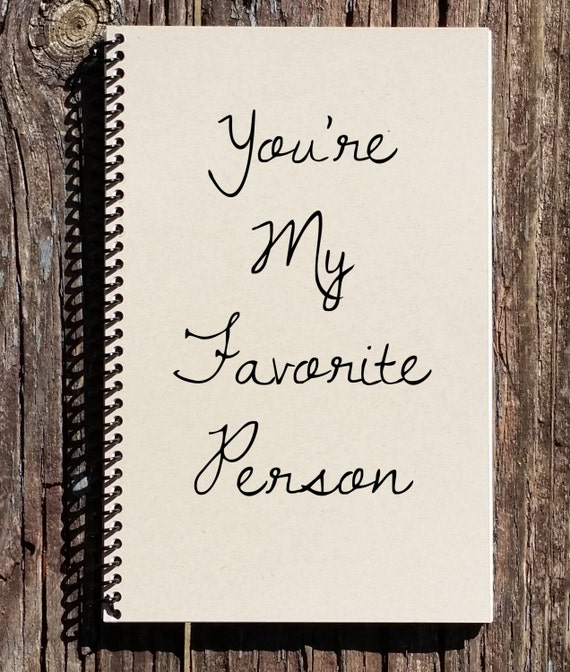 You're
My
Favorite
Person